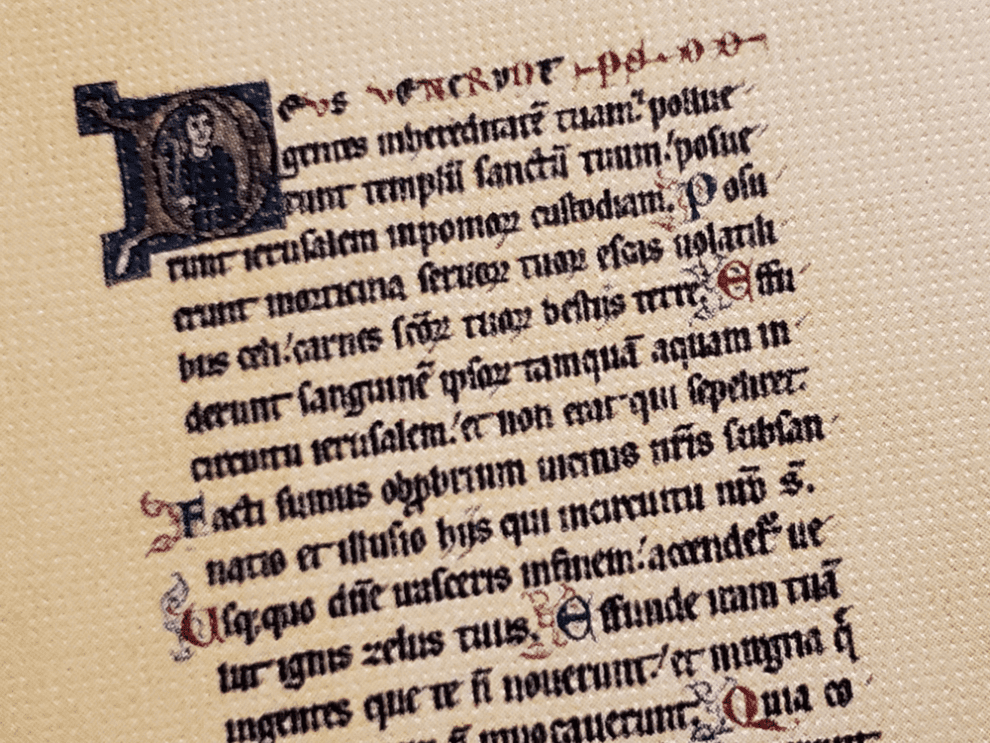 Deus venerunt
gentes inhereditatē tuam: pollue
runt templū sanctū tuum: posue
runt ierusalem inpomoꝝ custodiam. Posu
erunt morticina seruoꝝ tuoꝝ escas uolatili
bus celi: carnes scōꝝ tuoꝝ bestiis terre. Effu
derunt sanguinē ipsoꝝ tamquā aquam in
circuitu ierusalem: et non erat qui sepeliret.
Facti sumus obprbrium uicinis nr̄is subsan
natio et illusio hijs qui incircuitu
Usq;quo dn̄e irasceris infinem: accendet᷑ ue
lut ignis zelus tuus. Effunde iram tuā
ingentes que te n̄ nouerunt: et inregna q̄
n̄ inuocauerunt: Quia co